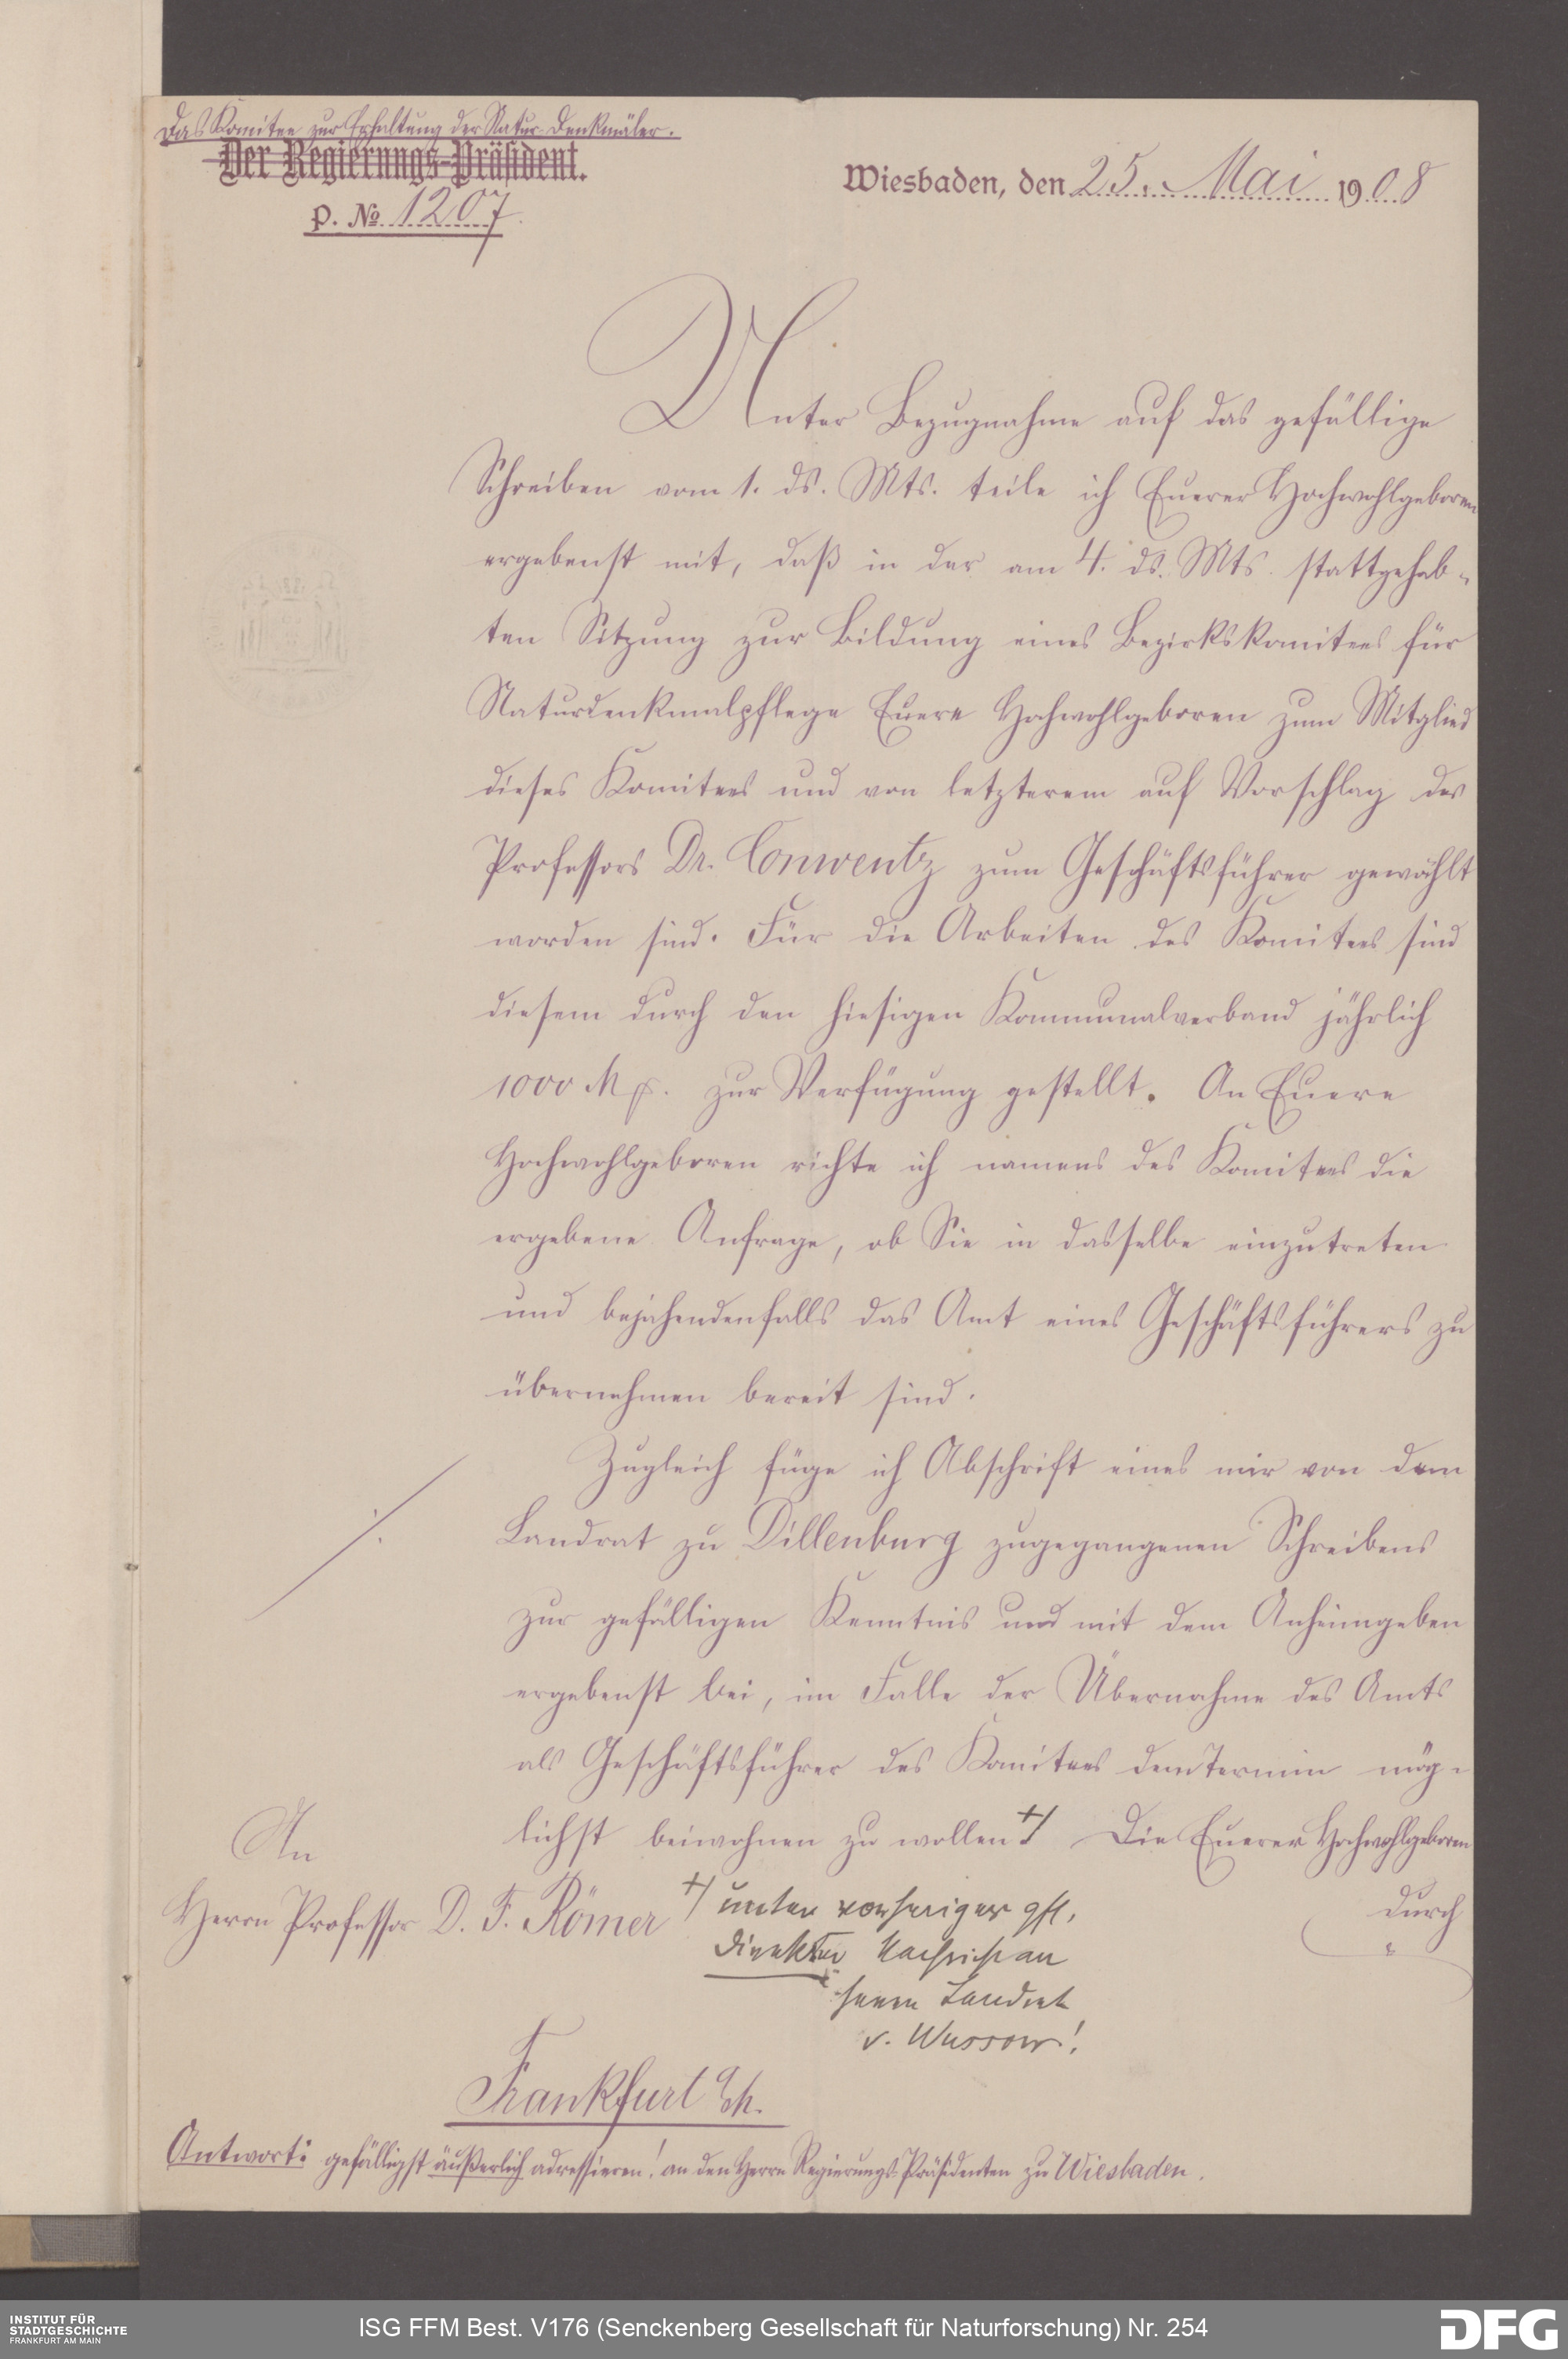 Das Komitee zur Erhaltung der Natur-Denkmäler.
Der Regierungs-Präsident.
P. No 1207.
Wiesbaden, den 25. Mai 1908
Unter Bezugnahme auf das gefällige
Schreiben vom 1. ds. Mts. teile ich Euerer Hochwohlgeboren
ergebenst mit, daß in der am 4. ds. Mts. stattgehab-
ten Sitzung zur Bildung eines Bezirkskomitees für
Naturdenkmalpflege Euere Hochwohlgeboren zum Mitglied
dieses Komitees und von letzterem auf Vorschlag des
Professors Dr. Conwentz zum Geschäftsführer gewählt
worden sind. Für die Arbeiten des Komitees sind
diesem durch den hiesigen Kommunalverband jährlich
1000 M zur Verfügung gestellt. An Euere
Hochwohlgeboren richte ich namens des Komitees die
ergebene Anfrage, ob Sie in dasselbe einzutreten
und bejahendenfalls das Amt eines Geschäftsführers zu
übernehmen bereit sind.
Zugleich füge ich Abschrift eines mir von dem
Landrat zu Dillenburg zugegangenen Schreibens
zur gefälligen Kenntnis und mit dem Anheimgeben
ergebenst bei, im Falle der Übernahme des Amts
als Geschäftsführer des Komitees dem Termin mög-
lichst beiwohnen zu wollen +/ Die Euerer Hochwohlgeboren
durch
An
Herrn Professor D. F. Römer
+/ unter vorheriger gfl.
direkter Nachricht an
Herrn Landrat
v. Wussow!
Frankfurt
Antwort: gefälligst äußerlich adressieren! an den Herrn Regierungs-Präsidenten zu Wiesbaden.
INSTITUT FÜR
STADTGESCHICHTE
FRANKFURT AM MAIN
ISG FFM Best. V176 (Senckenberg Gesellschaft für Naturforschung) Nr. 254
DFG